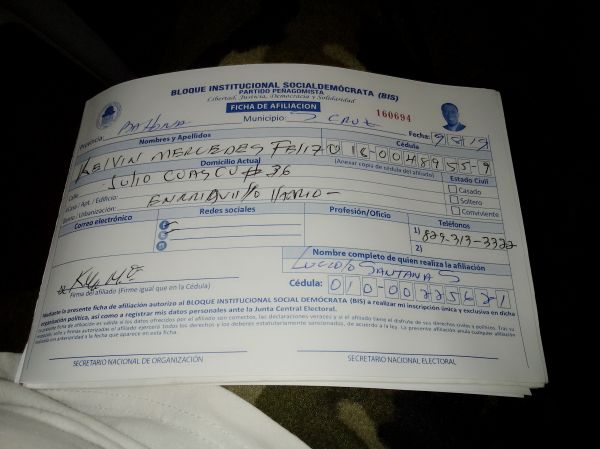 BLOQUE INSTITUCIONAL SOCIALDEMÓCRATA (BIS)
PARTIDO PEÑAGOMISTA
Libertad, Justicia, Democracia y Solidaridad
FICHA DE AFILIACION
160694
Provincia Municipio: S CRUZ Fecha: 9/8/19
Nombres y Apellidos Cédula
KELVIN MERCEDES FELIZ 016-0048955-9
Domicilio Actual (Anexar copia de cédula del afiliado)
Calle: JULIO CUASCU # 36 Estado Civil
Casa / Apt. / Edificio: Casado
Barrio / Urbanización: Soltero
Conviviente
Correo electrónico Redes sociales Profesión/Oficio Teléfonos
1) 829-313-3322
2)
Nombre completo de quien realiza la afiliación
SANTANA S
Firma del afiliado (Firme igual que en la Cédula) Cédula: 010-0075671
Mediante la presente ficha de afiliación autorizo al BLOQUE INSTITUCIONAL SOCIAL DEMÓCRATA (BIS) a realizar mi inscripción única y exclusiva en dicha
organización política, así como a registrar mis datos personales ante la Junta Central Electoral.
SECRETARIO NACIONAL DE ORGANIZACIÓN SECRETARIO NACIONAL ELECTORAL